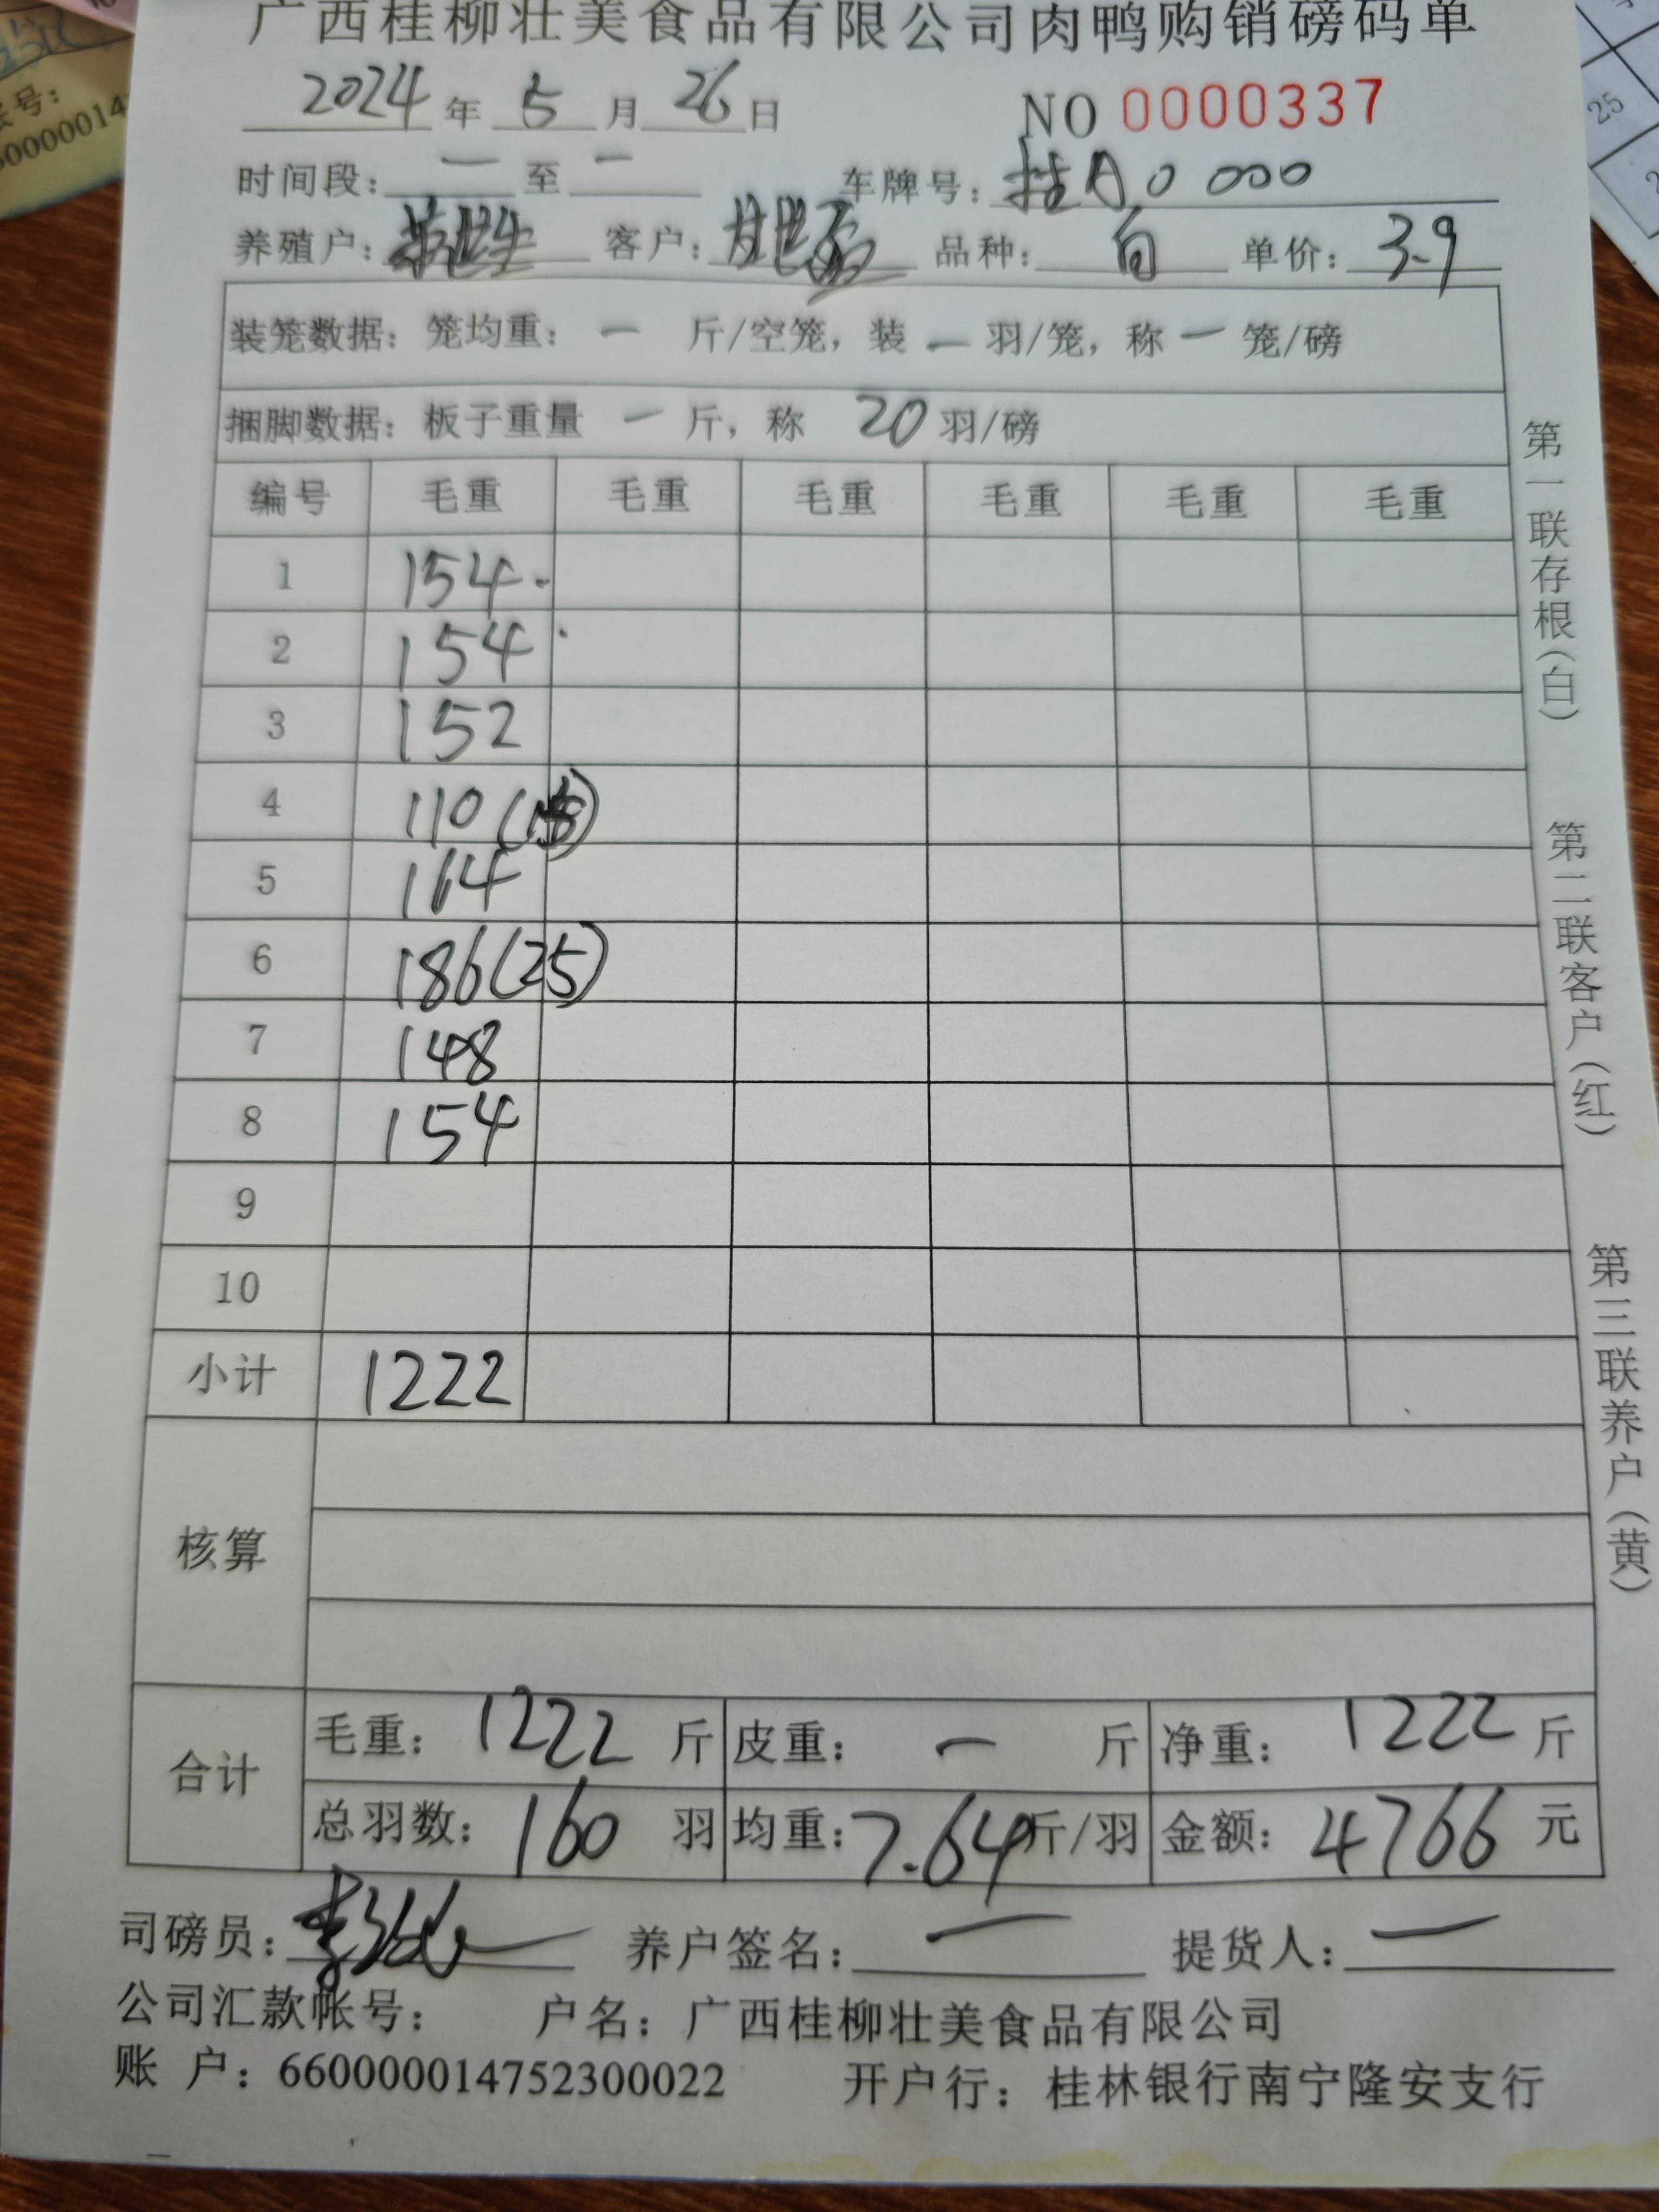 广西桂柳壮美食品有限公司肉鸭购销磅码单
2024年 5 月 26 日 NO 0000337
时间段： — 至 — 车牌号：桂A0000
养殖户： 客户： 品种： 单价：3.9
装笼数据：笼均重： — 斤/空笼，装 — 羽/笼，称 — 笼/磅
捆脚数据：板子重量 — 斤，称 20 羽/磅
编号 毛重 毛重 毛重 毛重 毛重 毛重
1 154
2 154
3 152
4 110
5 164
6 186(25)
7 148
8 154
9
10
小计 1222
核算
合计 毛重：1222 斤 皮重： — 斤 净重：1222 斤
总羽数：160 羽 均重：7.64 斤/羽 金额：4766 元
司磅员： 养户签名： — 提货人： —
公司汇款帐号： 户名：广西桂柳壮美食品有限公司
账 户：660000014752300022 开户行：桂林银行南宁隆安支行
第一联存根(白)
第二联客户(红)
第三联养户(黄)
帐号：
25